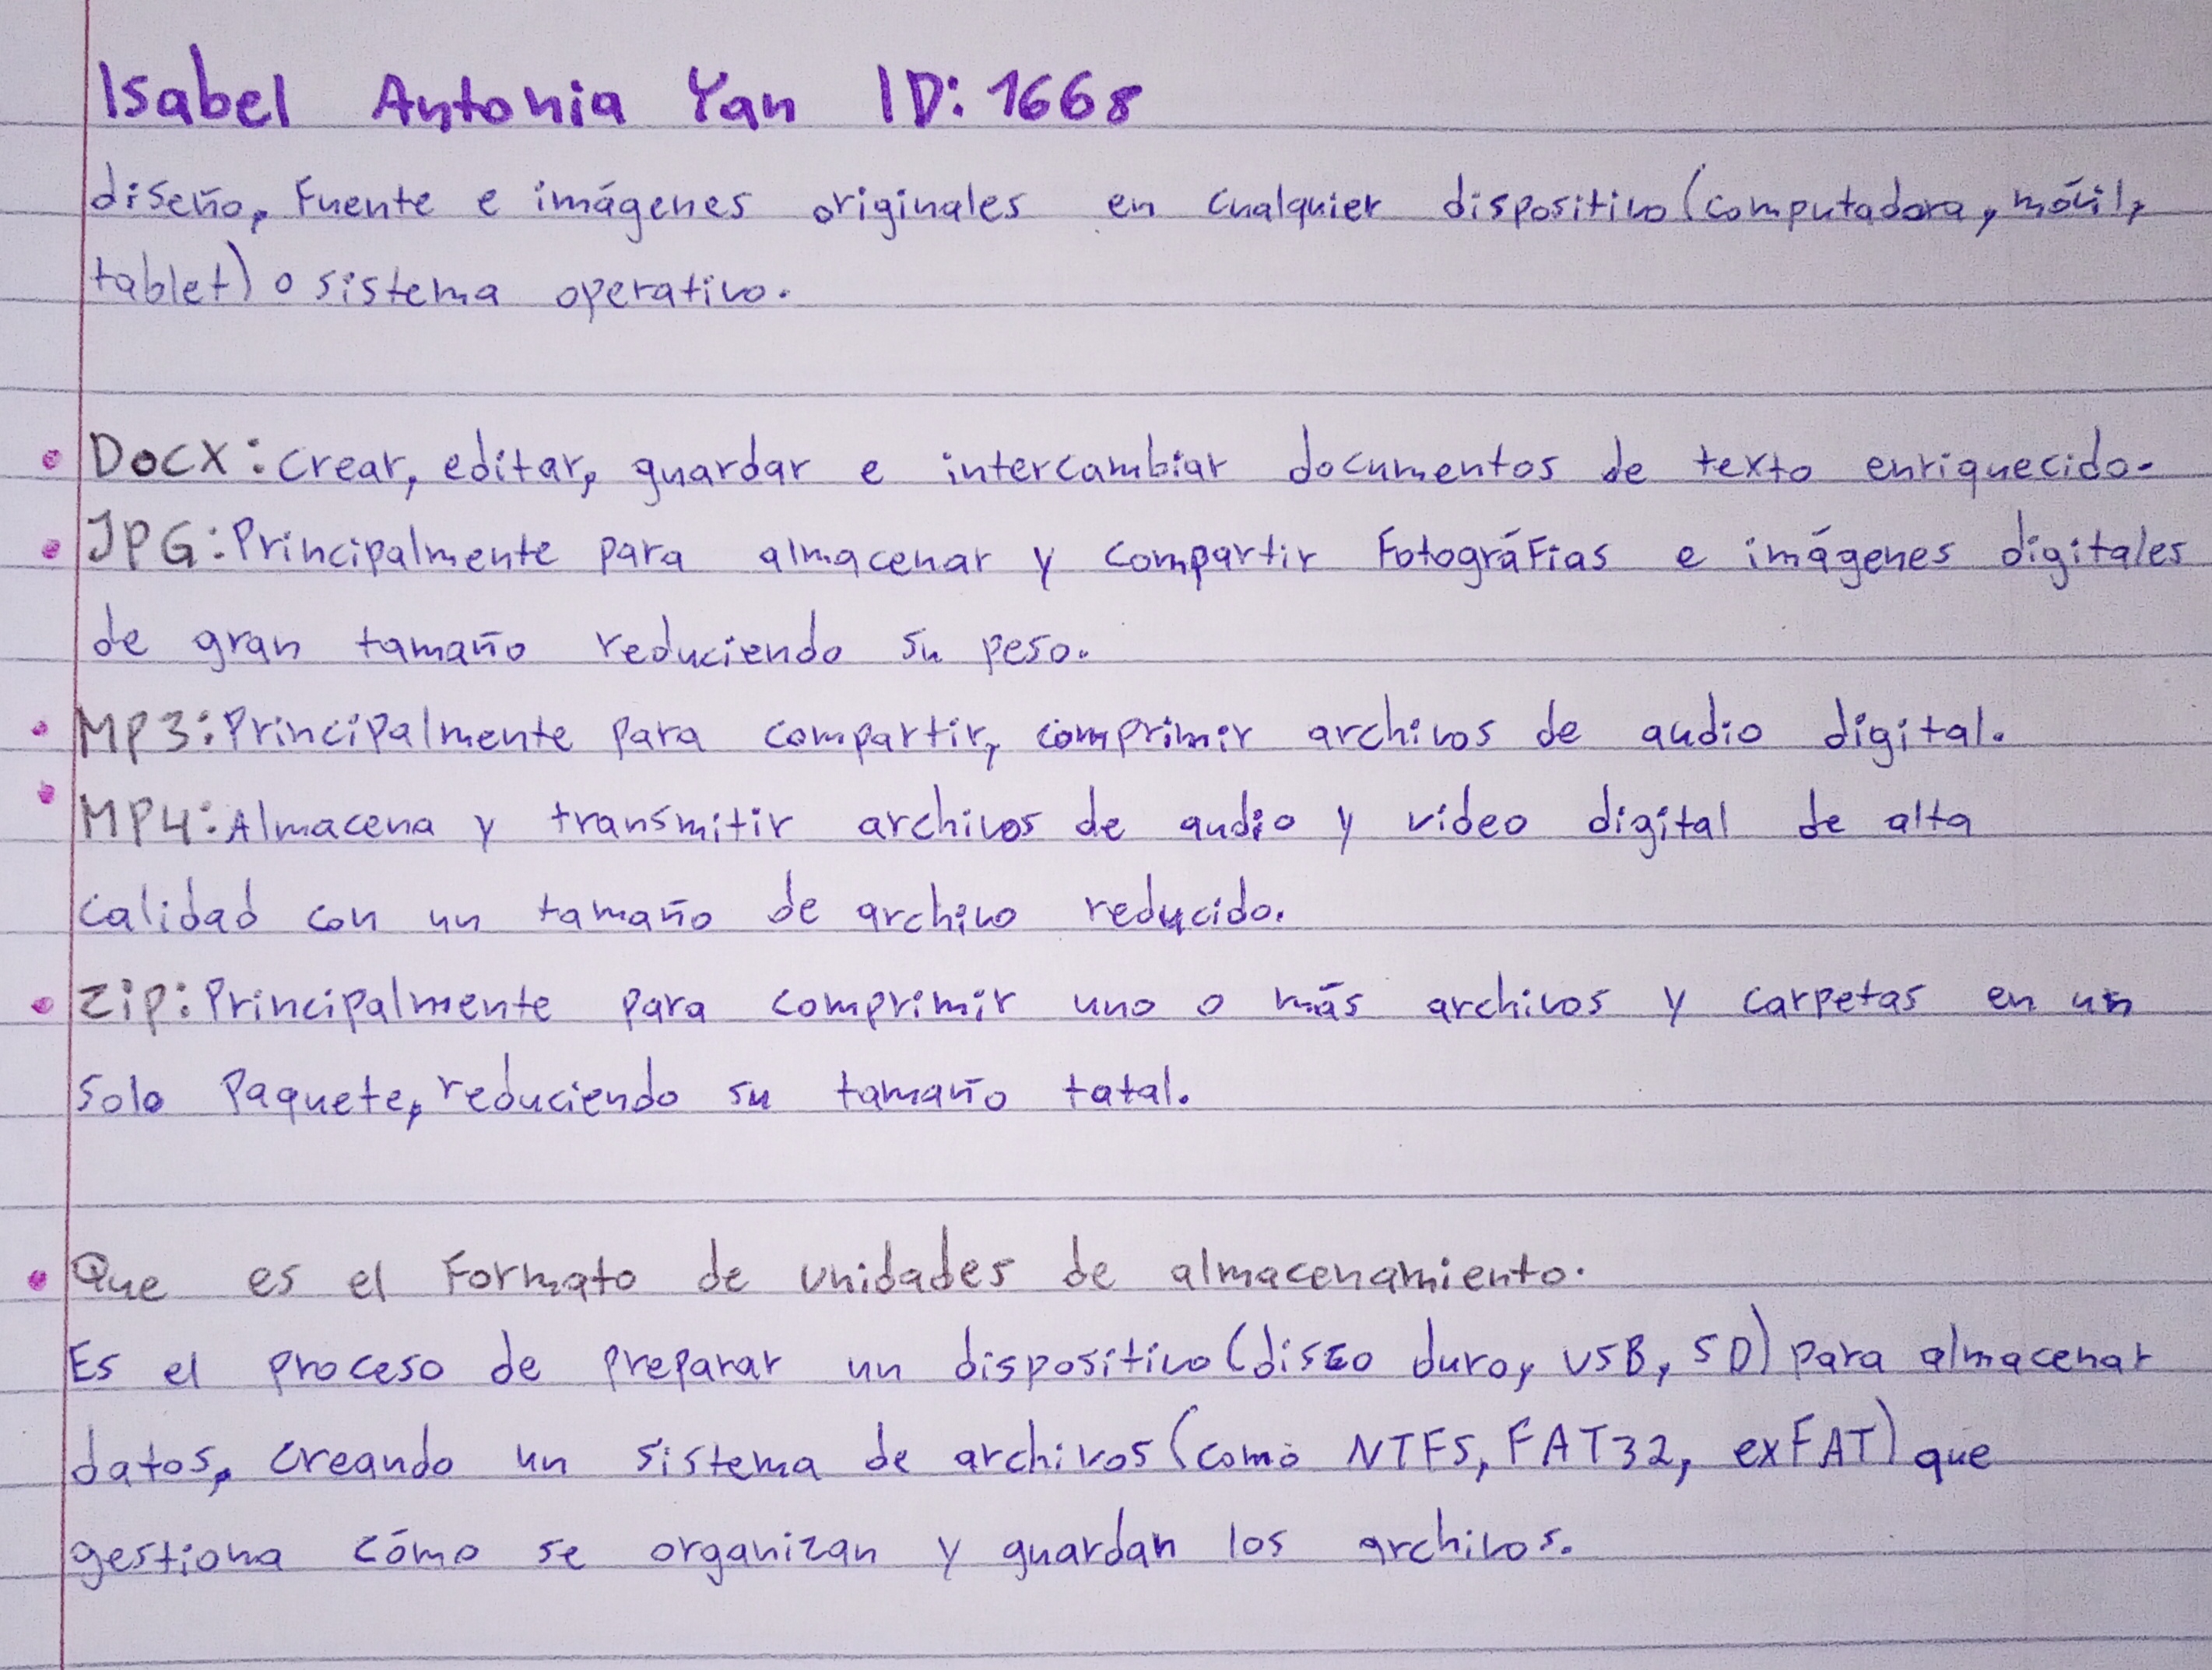 Isabel Antonia Yan ID: 1668
diseño, Fuente e imágenes originales en cualquier dispositivo (computadora, móvil,
tablet) o sistema operativo.
• Docx: crear, editar, guardar e intercambiar documentos de texto enriquecido.
• JPG: Principalmente para almacenar y compartir Fotográfias e imágenes digitales
de gran tamaño reduciendo su peso.
• MP3: Principalmente para compartir, comprimir archivos de audio digital.
• MP4: Almacena y transmitir archivos de audio y video digital de alta
calidad con un tamaño de archivo reducido.
• Zip: Principalmente para comprimir uno o más archivos y carpetas en un
solo Paquete, reduciendo su tamaño tatal.
• Que es el Formato de unidades de almacenamiento.
Es el proceso de preparar un dispositivo (disco duro, USB, SD) para almacenar
datos, creando un sistema de archivos (como NTFS, FAT32, exFAT) que
gestiona cómo se organizan y guardan los archivos.